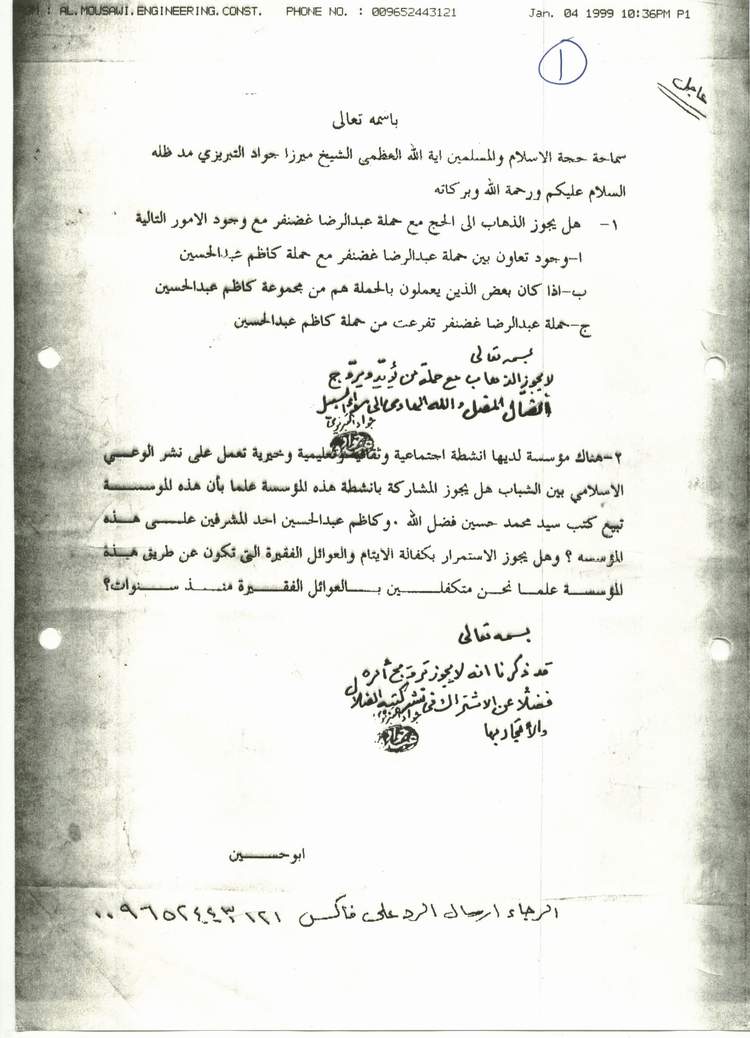 OM : AL.MOUSAWI.ENGINEERING.CONST. PHONE NO. : 009652443121 Jan. 04 1999 10:36PM P1
١
عاجل
باسمه تعالى
سماحة حجة الاسلام والمسلمين اية الله العظمى الشيخ ميرزا جواد التبريزي مد ظله
السلام عليكم ورحمة الله وبركاته
١- هل يجوز الذهاب الى الحج مع حملة عبدالرضا غضنفر مع وجود الامور التالية
ا-وجود تعاون بين حملة عبدالرضا غضنفر مع حملة كاظم عبدالحسين
ب-اذا كان بعض الذين يعملون بالحملة هم من مجموعة كاظم عبدالحسين
ج-حملة عبدالرضا غضنفر تفرعت من حملة كاظم عبدالحسين
بسمه تعالى
لا يجوز الذهاب مع حملة من يؤيد ويروّج
الضال المضل والله الهادي الى سواء السبيل
جواد التبريزي
٢-هناك مؤسسة لديها انشطة اجتماعية وثقافية وتعليمية وخيرية تعمل على نشر الوعي
الاسلامي بين الشباب هل يجوز المشاركة بانشطة هذه المؤسسة علما بأن هذه المؤسسة
تبيع كتب سيد محمد حسين فضل الله .وكاظم عبدالحسين احد المشرفين على هذه
المؤسسه ؟ وهل يجوز الاستمرار بكفالة الايتام والعوائل الفقيرة التي تكون عن طريق هذه
المؤسسة علما نحن متكفلين بالعوائل الفقيرة منذ سنوات؟
بسمه تعالى
قد ذكرنا انه لا يجوز ترويج أمره
فضلًا عن الاشتراك في نشر كتب الضلال
والاتجار بها
جواد التبريزي
ابوحسين
الرجاء ارسال الرد على فاكس ٠٠٩٦٥٢٤٤٣١٢١